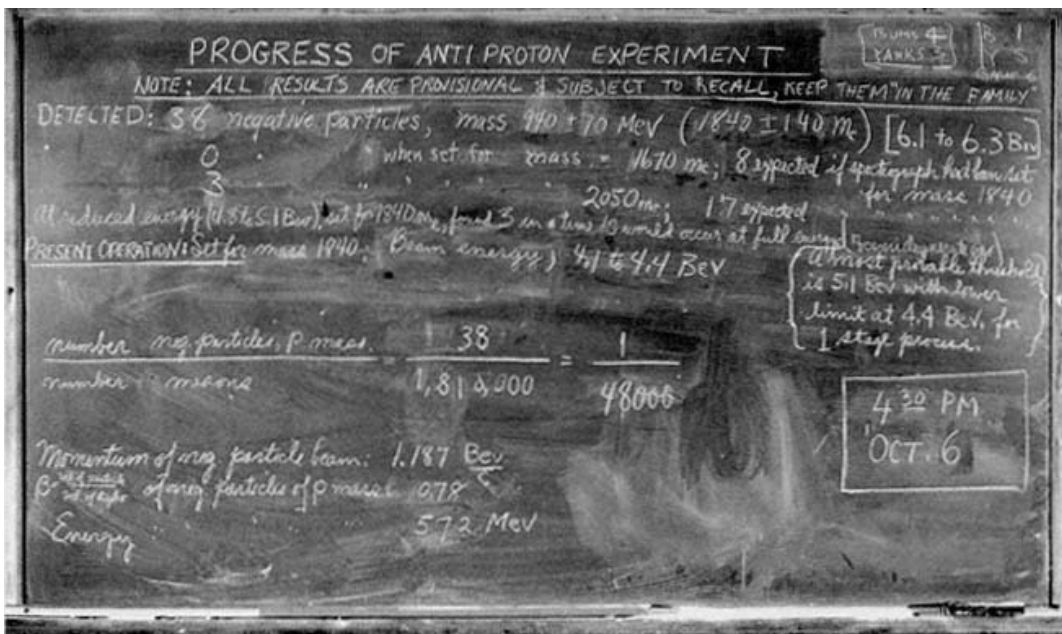 BUMS 4
YANKS 5
B 1
PROGRESS OF ANTI PROTON EXPERIMENT
NOTE: ALL RESULTS ARE PROVISIONAL & SUBJECT TO RECALL, KEEP THEM "IN THE FAMILY"
DETECTED: 38 negative particles, mass 940 ± 70 MeV (1840 ± 140 me) [6.1 to 6.3 Bev]
0 " " when set for mass = 1670 me; 8 expected if spectrograph had been set for mass 1840
3 " " " " " 2050 me; 17 expected " " " " "
At reduced energy (4.8 to 5.1 Bev), set for 1840 me, found 3 in a time 10 would occur at full energy
PRESENT OPERATION: Set for mass 1840. Beam energy, 4.1 to 4.4 BeV
(a most probable threshold
is 5.1 Bev with lower
limit at 4.4 BeV. for
1 stage process.)
number neg. particles, P mass = 38 = 1
number " mesons 1,810,000 48000
4 30 PM
OCT. 6
Momentum of neg particle beam: 1.187 Bev/c
β of neg particles of P mass 0.78
Energy 572 MeV